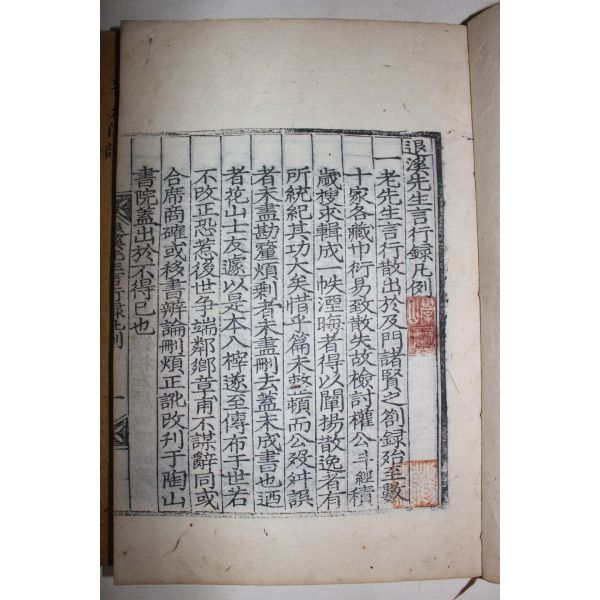 退溪先生言行録凡例
一老先生言行散出於及門諸賢之劄録殆至數
十家各藏巾衍易致散失故檢討權公斗經積
歲搜求輯成一帙湮晦者得以闡揚散逸者有
所統紀其功大矣惜乎篇未整頓而公歿舛誤
者未盡勘釐煩剩者未盡刪去蓋未成書也廼
者花山士友遽以是本入梓遂至傳布于世若
不改正恐惹後世爭端鄰鄉章甫不謀辭同或
合席商確或移書辨論刪煩正訛改刊于陶山
書院蓋出於不得已也
退溪先生言行録凡例 一